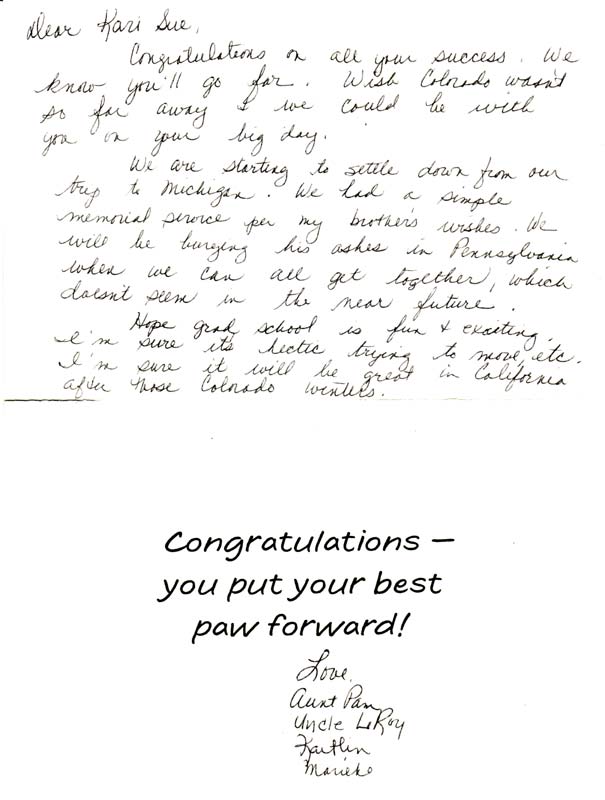 Dear Kari Sue,
Congratulations on all your success. We
know you'll go far. Wish Colorado wasn't
so far away & we could be with
you on your big day.
We are starting to settle down from our
trip to Michigan. We had a simple
memorial service per my brother's wishes. We
will be burying his ashes in Pennsylvania
when we can all get together, which
doesn't seem in the near future.
Hope grad school is fun & exciting.
I'm sure its hectic trying to move, etc.
I'm sure it will be great in California
after those Colorado winters.
Congratulations –
you put your best
paw forward!
Love,
Aunt Pam
Uncle LeRoy
Kaitlin
Marieke